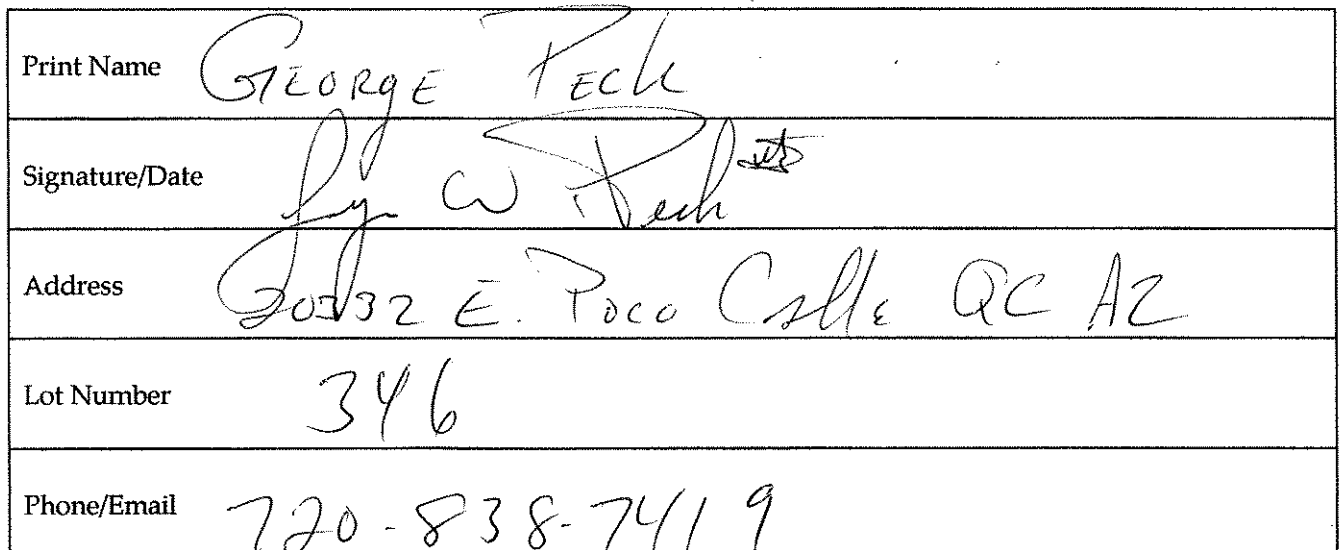 Print Name GEORGE PECK
Signature/Date W Peck
Address 20332 E. Poco Calle QC AZ
Lot Number 346
Phone/Email 720-838-7419